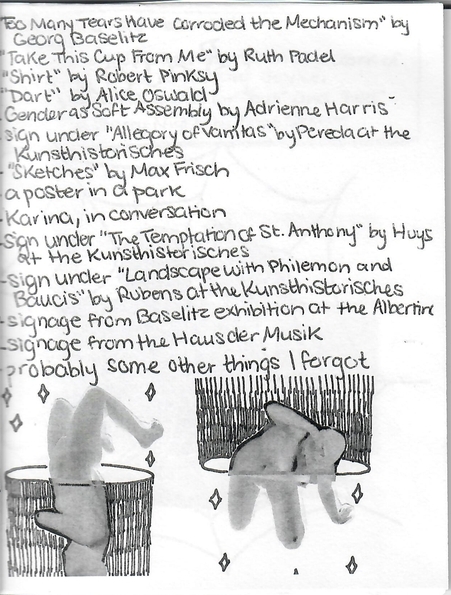 Too Many Tears Have Corroded the Mechanism" by
Georg Baselitz
"Take This Cup From Me" by Ruth Padel
"Shirt" by Robert Pinksy
"Dart" by Alice Oswald
Gender as Soft Assembly by Adrienne Harris
-sign under "Allegory of Vanitas" by Pereda at the
Kunsthistorisches
-"Sketches" by Max Frisch
-a poster in a park
-Karina, in conversation
-sign under "The Temptation of St. Anthony" by Huys
at the Kunsthistorisches
-sign under "Landscape with Philemon and
Baucis" by Rubens at the Kunsthistorisches
-signage from Baselitz exhibition at the Albertina
-signage from the Haus der Musik
-probably some other things I forgot